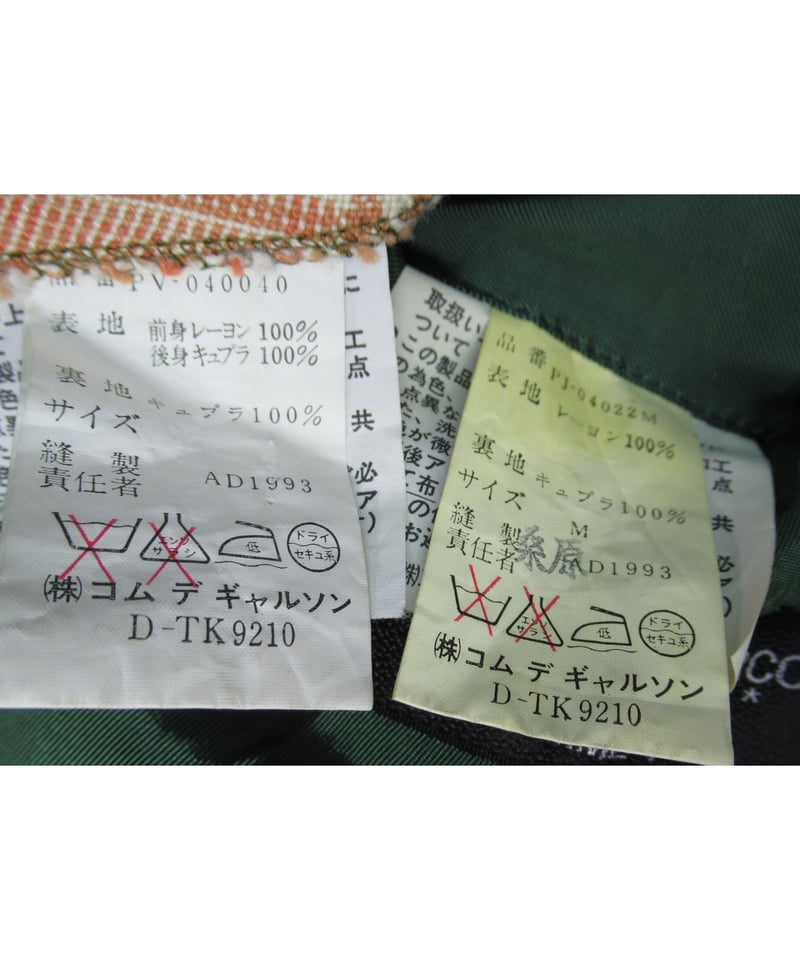 品番 PV-040040
表地 前身レーヨン 100%
後身キュプラ 100%
裏地 キュプラ 100%
サイズ
縫製
責任者 AD1993
エンソ
サラシ
低
ドライ
セキユ系
(株)コム デ ギャルソン
D-TK9210
に
工
点
共
必
取扱い
ついて
この製品
の為色
点異な
た、洗
が微
後ア
て布
の
お
品番 PJ-04022M
表地 レーヨン 100%
裏地 キュプラ 100%
サイズ
M
縫製
責任者 桑原 AD1993
エンソ
サラシ
低
ドライ
セキユ系
(株)コム デ ギャルソン
D-TK9210
工
点
共